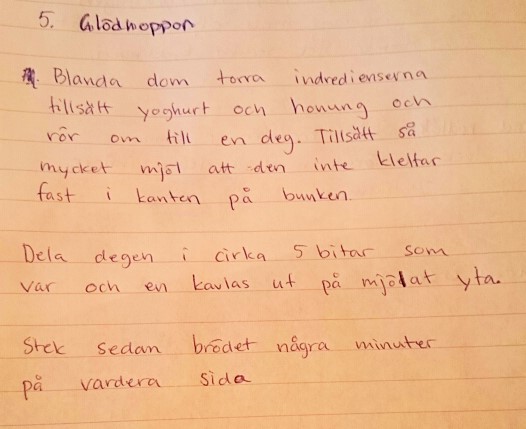 5. Glödhoppon
Blanda dom torra indredienserna
tillsätt yoghurt och honung och
rör om till en deg. Tillsätt så
mycket mjöl att den inte klettar
fast i kanten på bunken.
Dela degen i cirka 5 bitar som
var och en kavlas ut på mjölat yta.
Stek sedan brödet några minuter
på vardera sida